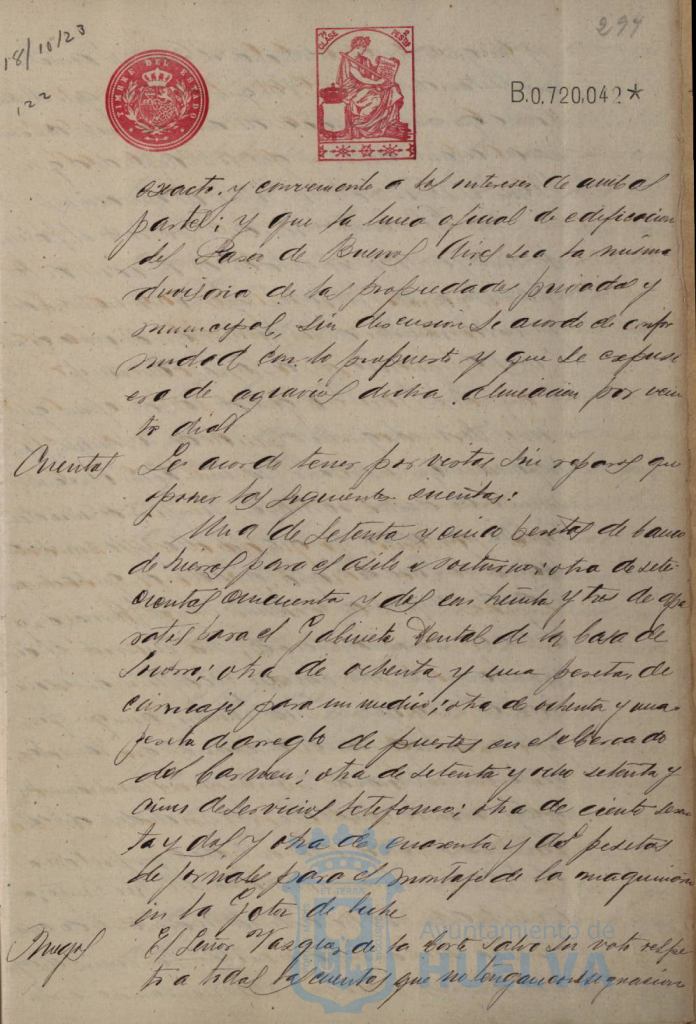 18/10/23
122
TIMBRE DEL ESTADO
CLASE PESETA
294
B.0,720,042*
exacto y conveniente a los intereses de ambas
partes; y que la linea oficial de edificacion
del Paseo de Buenos Aires sea la misma
divisoria de las propiedades privada y
municipal, sin discusion se acordo de confor
midad con lo propuesto y que se expusi
era de agravios dicha alineacion por vein
te dias
Cuentas Se acordo tener por vistas sin reparos que
oponer las siguientes cuentas:
Una de setenta y cinco pesetas de banco
de hierros para el asilo nocturno; otra de sete
cientas cincuenta y dos con treinta y tres de apa
ratos para el Gabinete Dental de la Casa de
Socorro; otra de ochenta y una pesetas de
carruajes para un medico; otra de ochenta y una
peseta de arreglo de puertas en el Mercado
del Carmen; otra de setenta y ocho setenta y
cinco de servicios telefonico; otra de ciento sesen
ta y dos y otra de cuarenta y dos pesetas
de jornales para el montaje de la maquinaria
en la Gota de leche
El Señor Vazquez de la Corte salvo su voto respec
to a todas las cuentas que no tengan consignacion
Ayuntamiento de
HUELVA